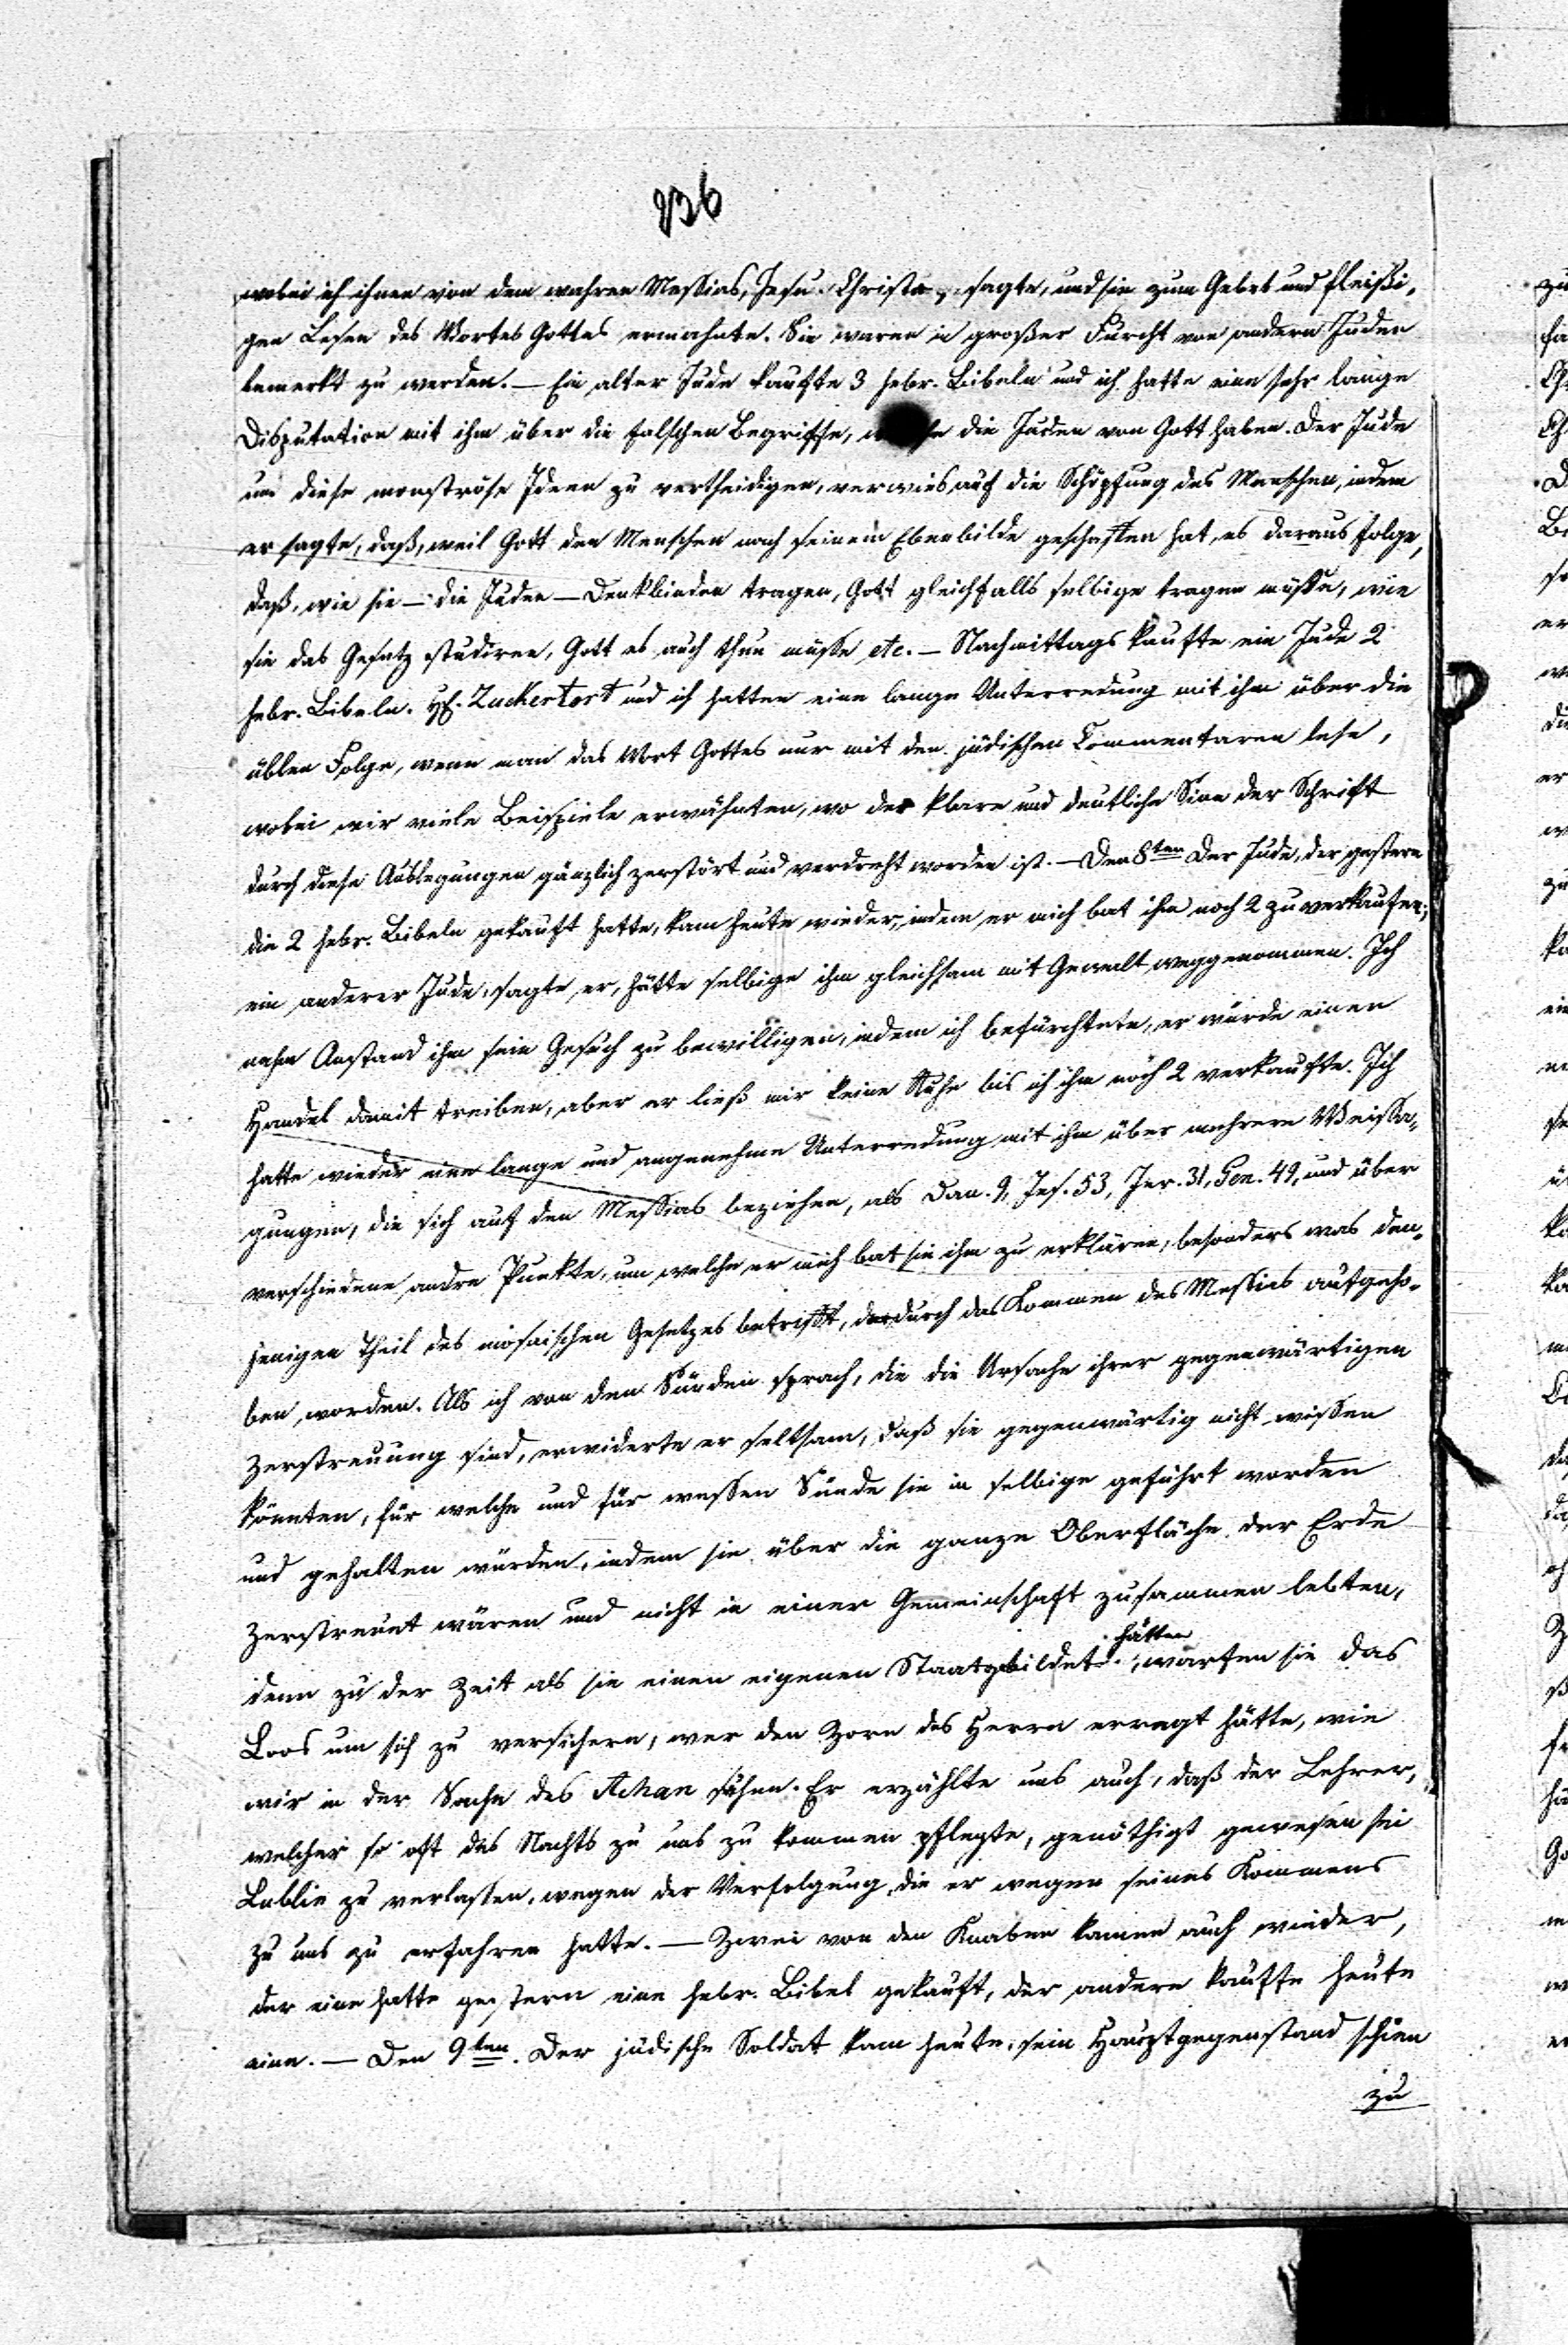 236
wobei ich ihnen von dem wahren Messias, Jesu Christo, sagte, und sie zum Gebet und fleißi-
gen Lesen des Wortes Gottes ermahnte. Sie waren in großer Furcht von andern Juden
bemerkt zu werden. — Ein alter Jude kaufte 3 hebr. Bibeln und ich hatte eine sehr lange
Disputation mit ihm über die falschen Begriffe, die Juden von Gott haben. Der Jude
um diese monströse Ideen zu vertheidigen, verwies auf die Schöpfung des Menschen, indem
er sagte, daß, weil Gott den Menschen nach seinem Ebenbilde geschaffen hat, es daraus folge,
daß, wie sie — die Juden — Denkbinden tragen, Gott gleichfalls selbige tragen müsse, wie
sie das Gesetz studiren, Gott es auch thun müsse etc. — Nachmittags kaufte ein Jude 2
hebr. Bibeln. H. Zuckertort und ich hatten eine lange Unterredung mit ihm über die
üblen Folge, wenn man das Wort Gottes nur mit den jüdischen Commentaren lese,
wobei wir viele Beispiele erwähnten, wo der klare und deutliche Sinn der Schrift
durch diese Auslegungen gänzlich zerstört und verdreht worden ist. — Den 8ten Der Jude, der gestern
die 2 hebr. Bibeln gekauft hatte, kam heute wieder, indem er mich bat ihm noch 2 zu verkaufen;
ein anderer Jude, sagte er, hätte selbige ihm gleichsam mit Gewalt weggenommen. Ich
nahm Anstand ihm sein Gesuch zu bewilligen, indem ich befürchtete, er würde einen
Handel damit treiben, aber er ließ mir keine Ruhe bis ich ihm noch 2 verkaufte. Ich
hatte wieder eine lange und angenehme Unterredung mit ihm über mehrere Weissa-
gungen, die sich auf den Messias beziehen, als Dan. 9, Jes. 53, Jer. 31, Gen. 49, und über
verschiedene andre Punkte, um welche er mich bat sie ihm zu erklären, besonders was den-
jenigen Theil des mosaischen Gesetzes betrifft, der durch das Kommen des Messias aufgeho-
ben worden. Als ich von den Sünden sprach, die die Ursache ihrer gegenwärtigen
Zerstreuung sind, erwiderte er seltsam, daß sie gegenwärtig nicht wissen
könnten, für welche und für wessen Sünde sie in selbige geführt worden
und gehalten würden, indem sie über die ganze Oberfläche der Erde
zerstreut wären und nicht in einer Gemeinschaft zusammen lebten,
denn zu der Zeit als sie einen eigenen Staat gebildet hätten, warfen sie das
Loos um sich zu versichern, wer den Zorn des Herrn erregt hätte, wie
wir in der Sache des Achan sähen. Er erzählte uns auch, daß der Lehrer,
welcher so oft des Nachts zu uns zu kommen pflegte, genöthigt gewesen sei
Lublin zu verlassen, wegen der Verfolgung, die er wegen seines Kommens
zu uns zu erfahren hatte. — Zwei von den Knaben kamen auch wieder,
der eine hatte gestern eine hebr. Bibel gekauft, der andere kaufte heute
eine. — Den 9ten. Der jüdische Soldat kam heute, sein Hauptgegenstand schien
zu